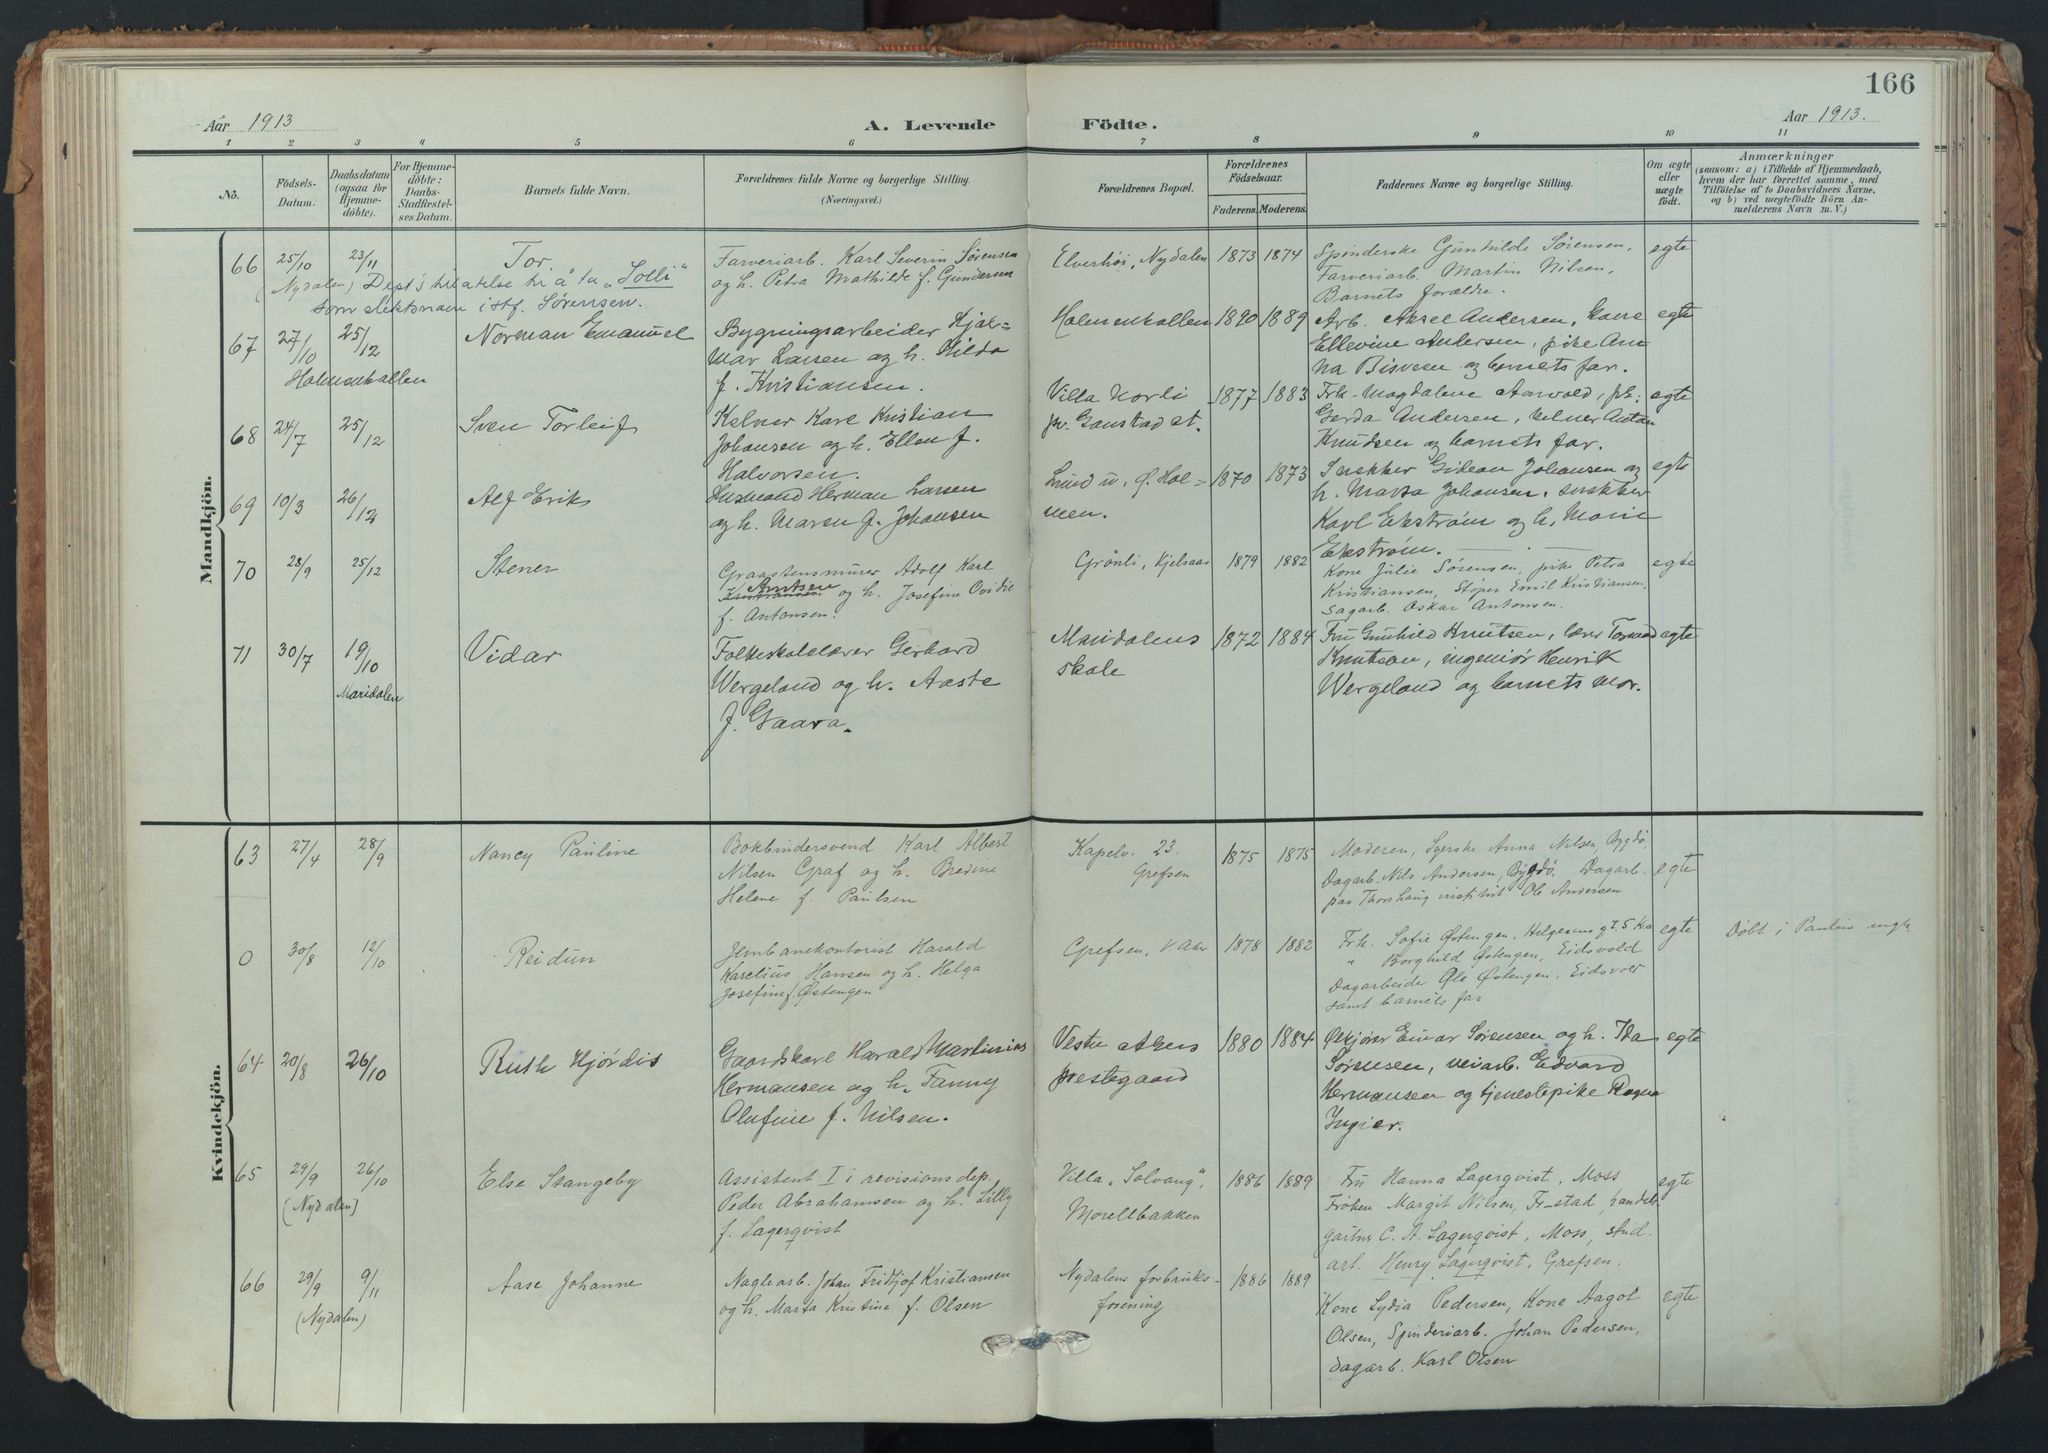 166
Aar 1913 A. Levende Födte. Aar 1913.
1 2 3 4 5 6 7 8 9 10 11
No. Födsels-Datum. Daabsdatum (ogsaa for Hjemmedöbte). For Hjemmedöbte: Daabs-Stadfæstelses Datum. Barnets fulde Navn. Forældrenes fulde Navne og borgerlige Stilling. (Næringsvei.) Forældrenes Bopæl. Forældrenes Födselsaar. Faderens. Moderens. Faddernes Navne og borgerlige Stilling. Om ægte eller uægte födt. Anmærkninger (saasom: a) i Tilfælde af Hjemmedaab, hvem der har forrettet samme, med Tilföielse af to Daabsvidners Navne, og b) ved uægtefödte Börn Anmelderens Navn m. V.)
Mandkjön.
66 25/10 23/11 Tor Farveriarb. Karl Severin Sørensen Elverhöi, Nydalen 1873 1874 Spinderske Gunhilde Sørensen, egte
(Nydalen) Dep's tillatelse til å ta "Solli" og h. Petra Mathilde f. Gundersen Farveriarb. Martin Nilsen,
som slektsnavn istf. Sørensen. Barnets forældre.
67 27/10 25/12 Norman Emanuel Bygningsarbeider Hjal= Holmenkollen 1890 1889 Arb. Aksel Andersen, Kone egte
mar Larsen og h. Hilda Ellevine Andersen, pike An
Holmenkollen f. Kristiansen. na Bisveen og barnets far.
68 24/7 25/12 Sven Torleif Kelner Karl Kristian Villa Norli 1877 1883 Frk. Magdalene Aarvold, pk. egte
Johansen og h. Ellen f. pr. Gaustad st. Gerda Andersen, kelner Anton
Halvorsen. Knudsen og barnets far.
69 10/3 26/12 Alf Erik Husmand Herman Larsen Lund u. Ø. Hol= 1870 1873 Snekker Gideon Johansen og egte
og h. Maren f. Johansen men. h. Marta Johansen, snekker
Karl Ekstrøm og h. Marie
Ekstrøm.
70 28/9 25/12 Stener Graastensmurer Adolf Karl Grønli, Kjelsaas 1879 1882 Kone Julie Sørensen, pike Petra egte
Knutsen Kristiansen og h. Josefine Ovidie Kristiansen, Støper Emil Kristiansen,
f. Antonsen. sagarb. Oskar Antonsen.
71 30/7 19/10 Vidar Folkeskolelærer Gerhard Maridalens 1872 1884 Fru Gunhild Knutsen, lærer Tormod egte
Maridalen Wergeland og h. Aaste skole Knutsen, ingeniør Henrik
f. Gaara. Wergeland og barnets mor.
Kvindekjön.
63 27/4 28/9 Nancy Pauline Bokbindersvend Karl Albert Kapelv. 23. 1875 1875 Moderen, Syerske Anna Nilsen, Bygdö,
Nilsen Graf og h. Bredine Grefsen Dagarb. Nils Andersen, Bygdö. Dagarb. egte
Helene f. Paulsen paa Thorshaug institut Ole Andersen
0 30/8 12/10 Reidun Jernbanekontorist Harald Grefsen, V Aker 1878 1882 Frk. Sofie Østengen, Helgesens gt. 5 Kra egte Döbt i Paulus
Karelius Hansen og h. Helga " Borghild Østengen, Eidsvold
Josefine f. Østengen Dagarbeider Ole Østengen, Eidsvold
samt barnets far
64 20/8 26/10 Ruth Hjördis Gaardskarl Harald Martinius Vestre Akers 1880 1884 Ølkjører Einar Sørensen og h. Ida egte
Hermansen og h. Fanny prestegaard Sørensen, veiarb. Edvard
Olufine f. Nilsen. Hermansen og tjenestepike Ragna
Ingier.
65 29/9 26/10 Else Stangeby Assistent I i revisionsdep. Villa "Solvang", 1886 1889 Fru Hanna Lagerqvist, Moss egte
(Nydalen) Peder Abrahamsen og h. Lilly Morellbakken Frøken Margit Nilsen, Fr-stad, handels
f. Lagerqvist gartner C. A. Lagerqvist, Moss, stud.
art. Henry Lagerqvist, Grefsen.
66 29/9 9/11 Aase Johanne Naglearb. Johan Fridtjof Kristiansen Nydalens forbruks- 1886 1889 Kone Lydia Pedersen, Kone Aagot egte
(Nydalen) og h. Marta Kristine f. Olsen forening Olsen, Spinderiarb. Johan Pedersen,
dagarb. Karl Olsen